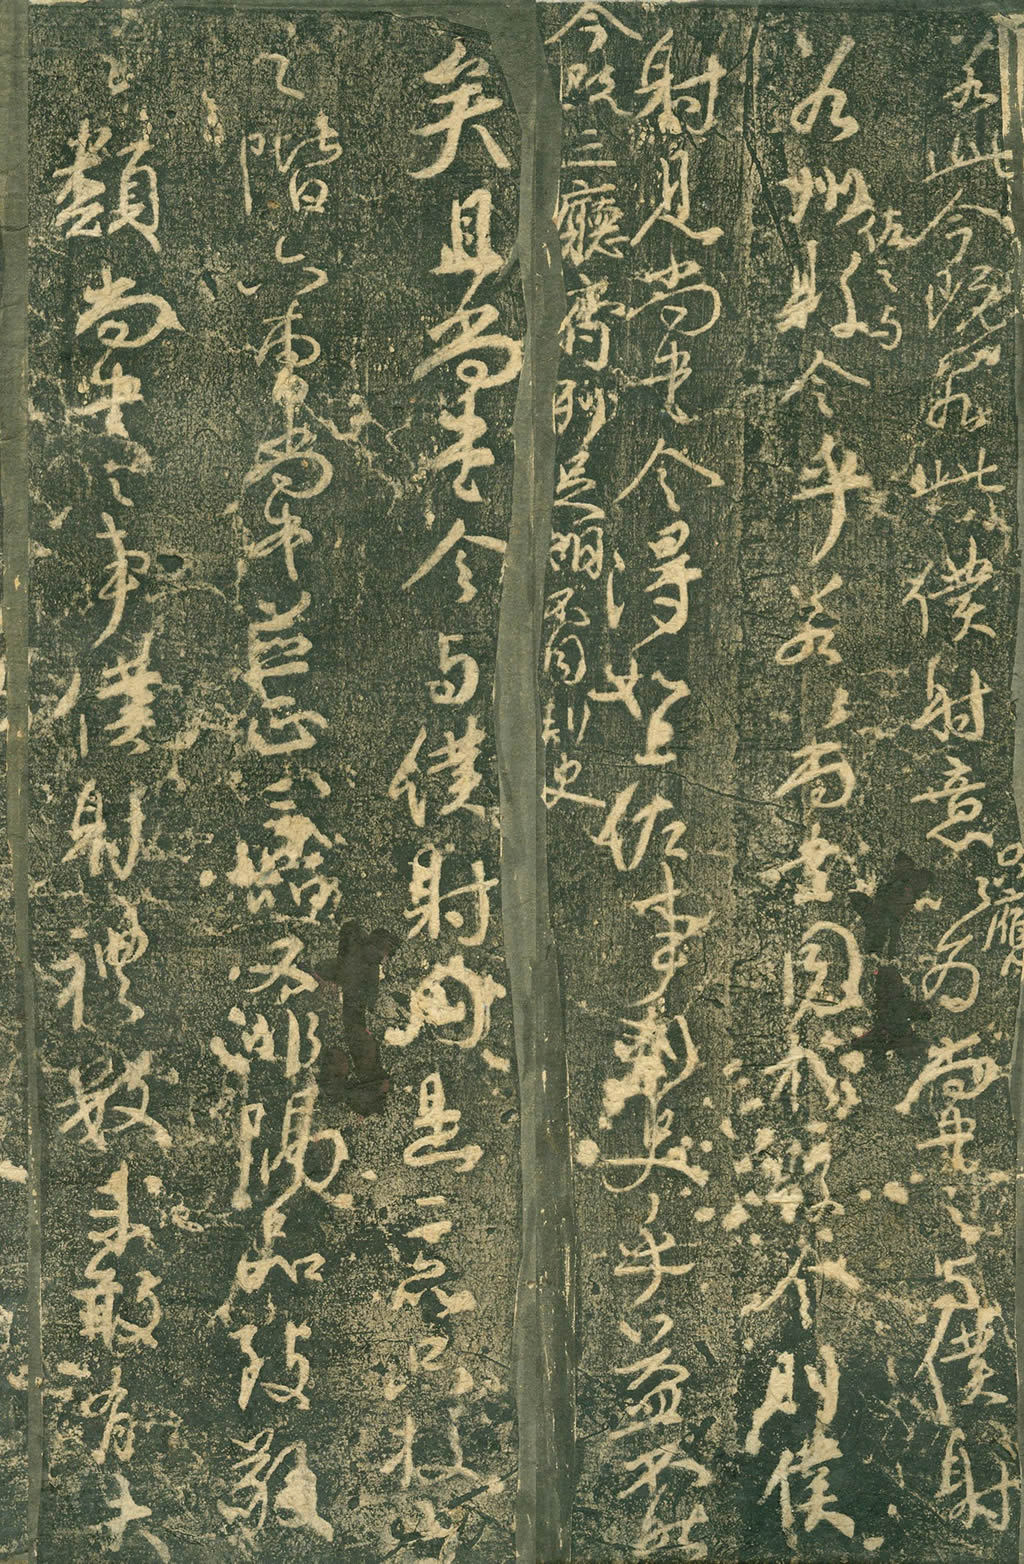 若此今既若此僕射意只應以為尚書之與僕射
若州佐之與縣令乎若以尚書同於縣令則僕
射見尚書令得如上佐事刺史乎益不然
今既三廳齊列足明不同刺史
矣且尚書令與僕射同是二品只校上下
之階六曹尚書並正三品又非隔品致敬
之類尚書之事僕射禮數未敢有失